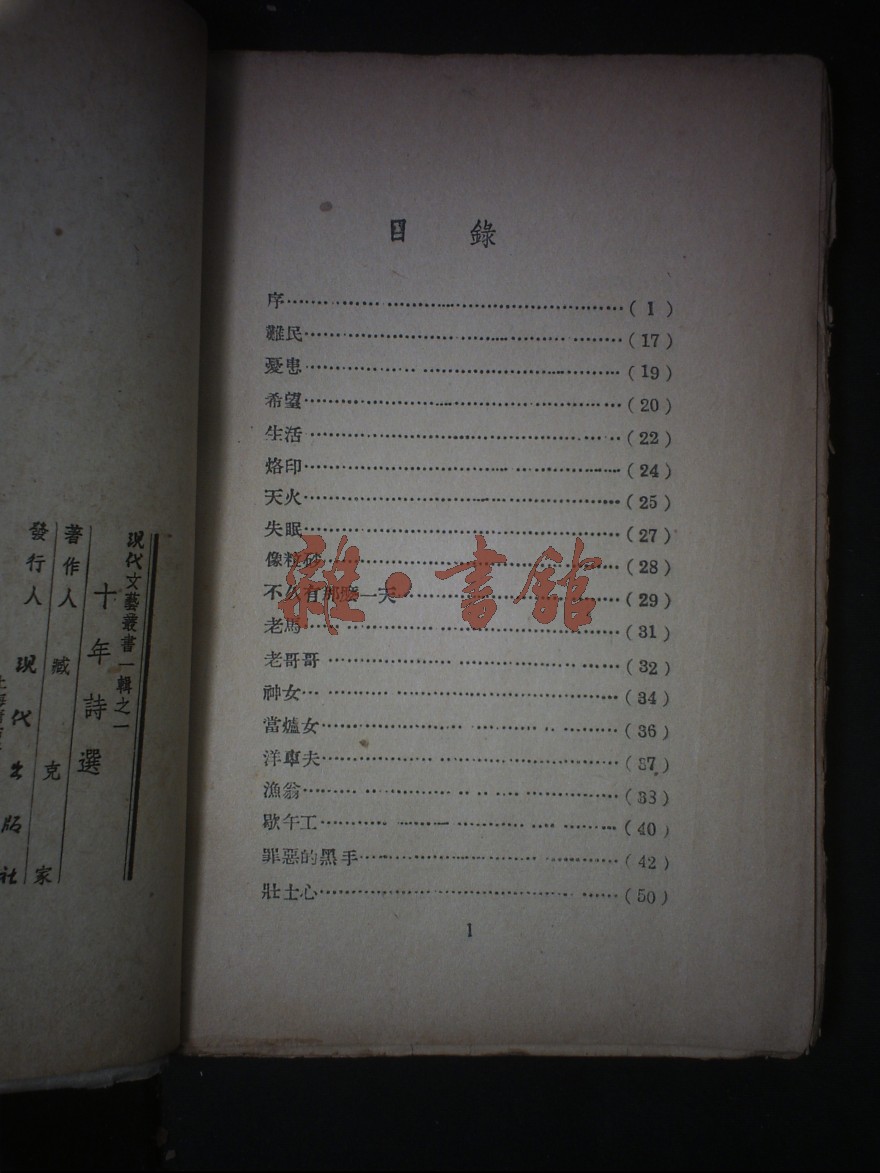 目錄
序……(1)
難民……(17)
憂患……(19)
希望……(20)
生活……(22)
烙印……(24)
天火……(25)
失眠……(27)
像粒砂……(28)
不久有那麼一天……(29)
老馬……(31)
老哥哥……(32)
神女……(34)
當爐女……(36)
洋車夫……(37)
漁翁……(38)
歇午工……(40)
罪惡的黑手……(42)
壯士心……(50)
1
現代文藝叢書一輯之一
十年詩選
著作人 臧克家
發行人 現代出版社
雜·書館